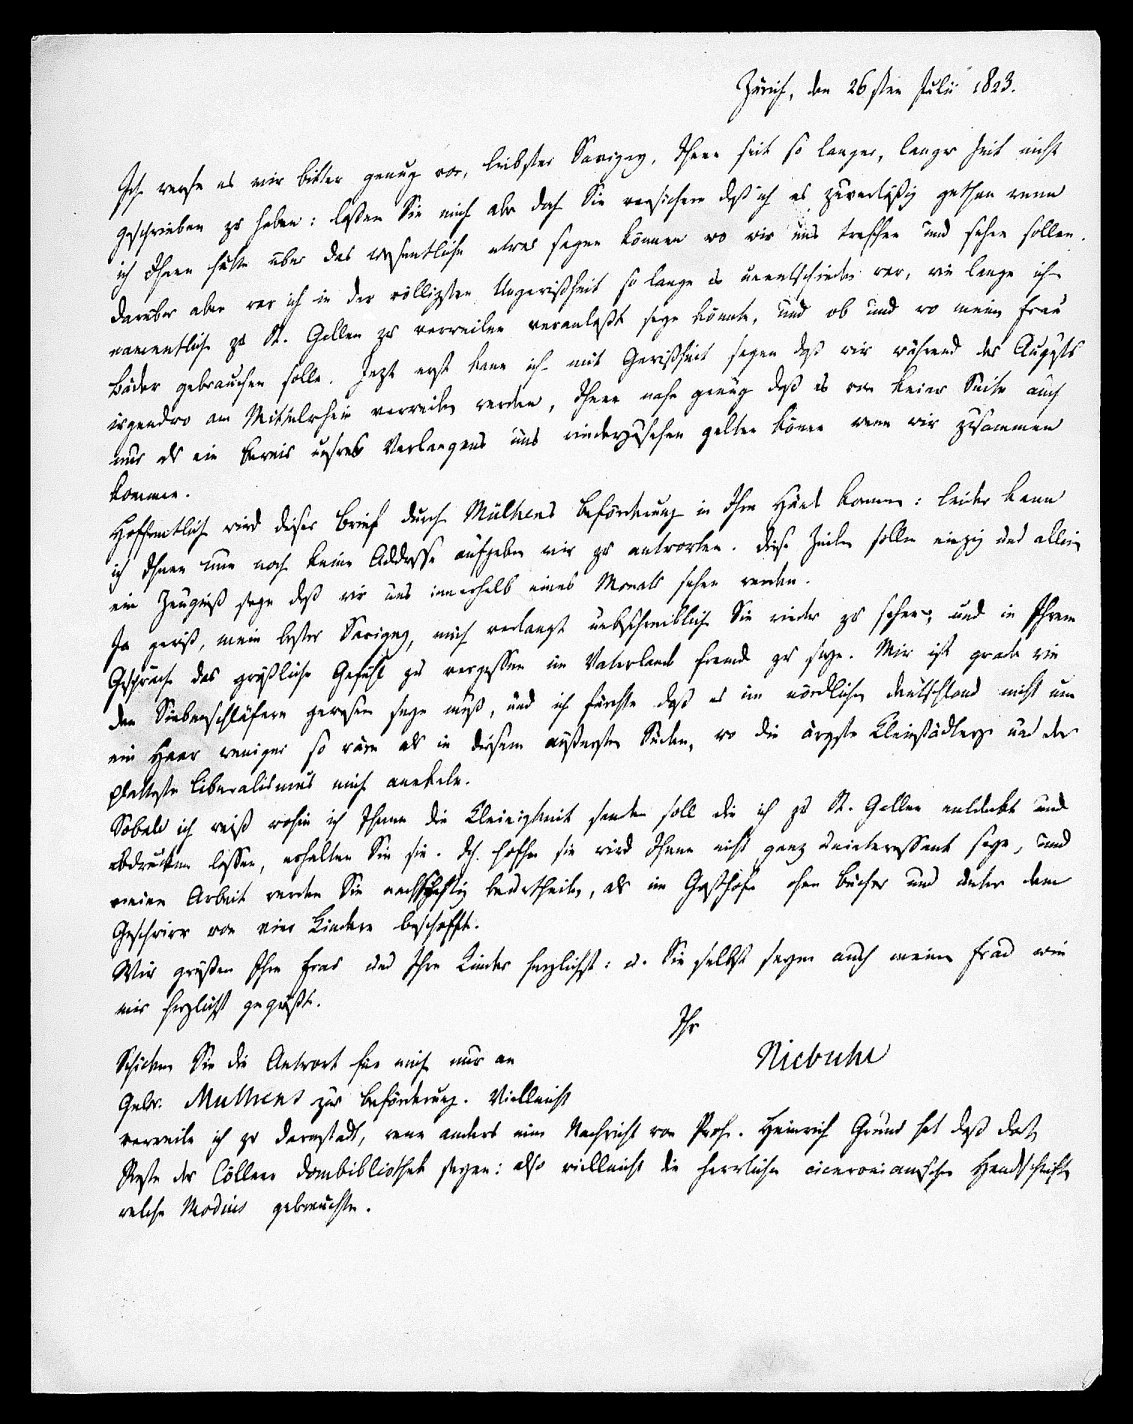 Zürich, den 26sten Julii 1823.
Ich werfe es mir bitter genug vor, liebster Savigny, Ihnen seit so langer, langer Zeit nicht
geschrieben zu haben: laßen Sie mich aber doch Sie versichern daß ich es zuverläßig gethan wenn
ich Ihnen hätte über das wesentliche etwas sagen können wo wir uns treffen und sehen sollen.
Darüber aber war ich in der völligsten Ungewißheit so lange es unentschieden war, wie lange ich
namentlich zu St. Gallen zu verweilen veranlaßt seyn könnte, und ob und wo meine Frau
Bäder gebrauchen solle. Jezt erst kann ich mit Gewißheit sagen daß wir während des Augusts
irgendwo am Mittelrhein verweilen werden, Ihnen nahe genug daß es von keiner Seite auch
nur als ein Beweis unsres Verlangens uns wiederzusehen gelten könne wenn wir zusammen
kommen.
Hoffentlich wird dieser Brief durch Mülhens Beförderung in Ihre Hände kommen: leider kann
ich Ihnen nun noch keine Addresse aufgeben mir zu antworten. Diese Zeilen sollen einzig und allein
ein Zeugniß seyn daß wir uns innerhalb eines Monats sehen werden.
Ja gewiß, mein bester Savigny, mich verlangt unbeschreiblich Sie wieder zu sehen, und in Ihrem
Gespräche das gräßliche Gefühl zu vergessen im Vaterlande fremd zu seyn. Mir ist grade wie
den Siebenschläfern gewesen seyn muß, und ich fürchte daß es im nördlichen Deutschland nicht um
ein Haar weniger so wäre als in diesem äußersten Süden, wo die ärgste Kleinstädterey und der
platteste Liberalismus mich anekeln.
Sobald ich weiß wohin ich Ihnen die Kleinigkeit senden soll die ich zu St. Gallen entdekt und
abdrucken lassen, erhalten Sie sie. Ich hoffe sie wird Ihnen nicht ganz uninteressant seyn, und
meine Arbeit werden Sie nachsichtig beurtheilen, als im Gasthofe ohne Bücher und unter dem
Geschwirr von vier Kindern beschafft.
Wir grüßen Ihre Frau und Ihre Kinder herzlichst: u. Sie selbst seyen auch meiner Frau wie
mir herzlichst gegrüßt.
Ihr
Niebuhr
Schicken Sie die Antwort für mich nur an
Gebr. Mülhens zur Beförderung. Vielleicht
verweile ich zu Darmstadt, wenn anders eine Nachricht von Prof. Heinrich Grund hat daß dort
Reste der Cöllner Dombibliothek seyen: also vielleicht die herrliche ciceronianische Handschrift
welche Modius gebrauchte.